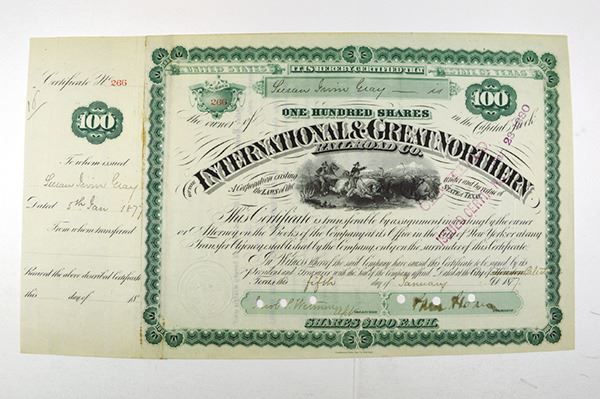 Certificate No. 266
100
To whom issued
Susan Irvin Gray
Dated 5th Jan 1877
From whom transferred
Received the above described Certificate
this day of 18
UNITED STATES
IT IS HEREBY CERTIFIED THAT
STATE OF TEXAS
Susan Irvin Gray is
266
100
the owner of
ONE HUNDRED SHARES
in the Capital Stock
of the
INTERNATIONAL & GREAT NORTHERN
RAILROAD CO.
A Corporation existing under and by virtue of
the Laws of the State of Texas
This Certificate is transferable by assignment in writing by the owner
or Attorney on the Books of the Company at its Office in the City of New York or at any
Transfer Agency established by the Company, only on the surrender of this Certificate.
In Witness whereof the said Company have caused this Certificate to be signed by its
President and Treasurer with the Seal of the Company affixed. Dated at the City of
Texas this fifth day of January A.D. 187
SHARES $100 EACH.